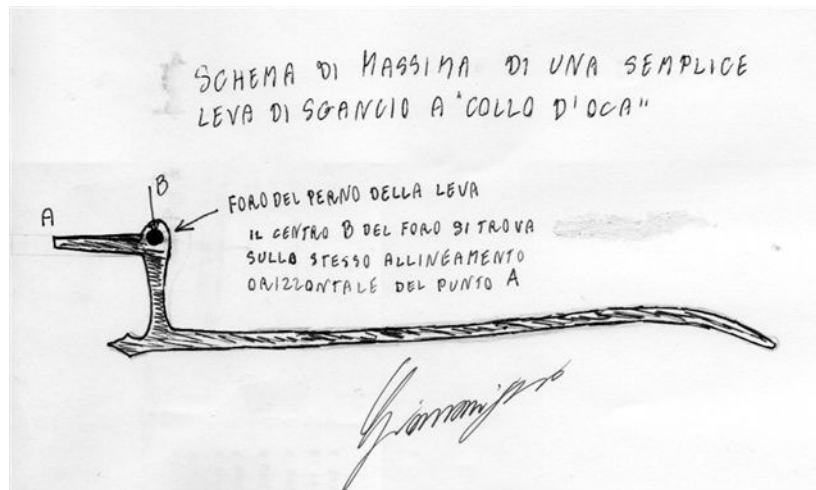 SCHEMA DI MASSIMA DI UNA SEMPLICE
LEVA DI SGANCIO A "COLLO D'OCA"
B
A
FORO DEL PERNO DELLA LEVA
IL CENTRO B DEL FORO SI TROVA
SULLO STESSO ALLINEAMENTO
ORIZZONTALE DEL PUNTO A